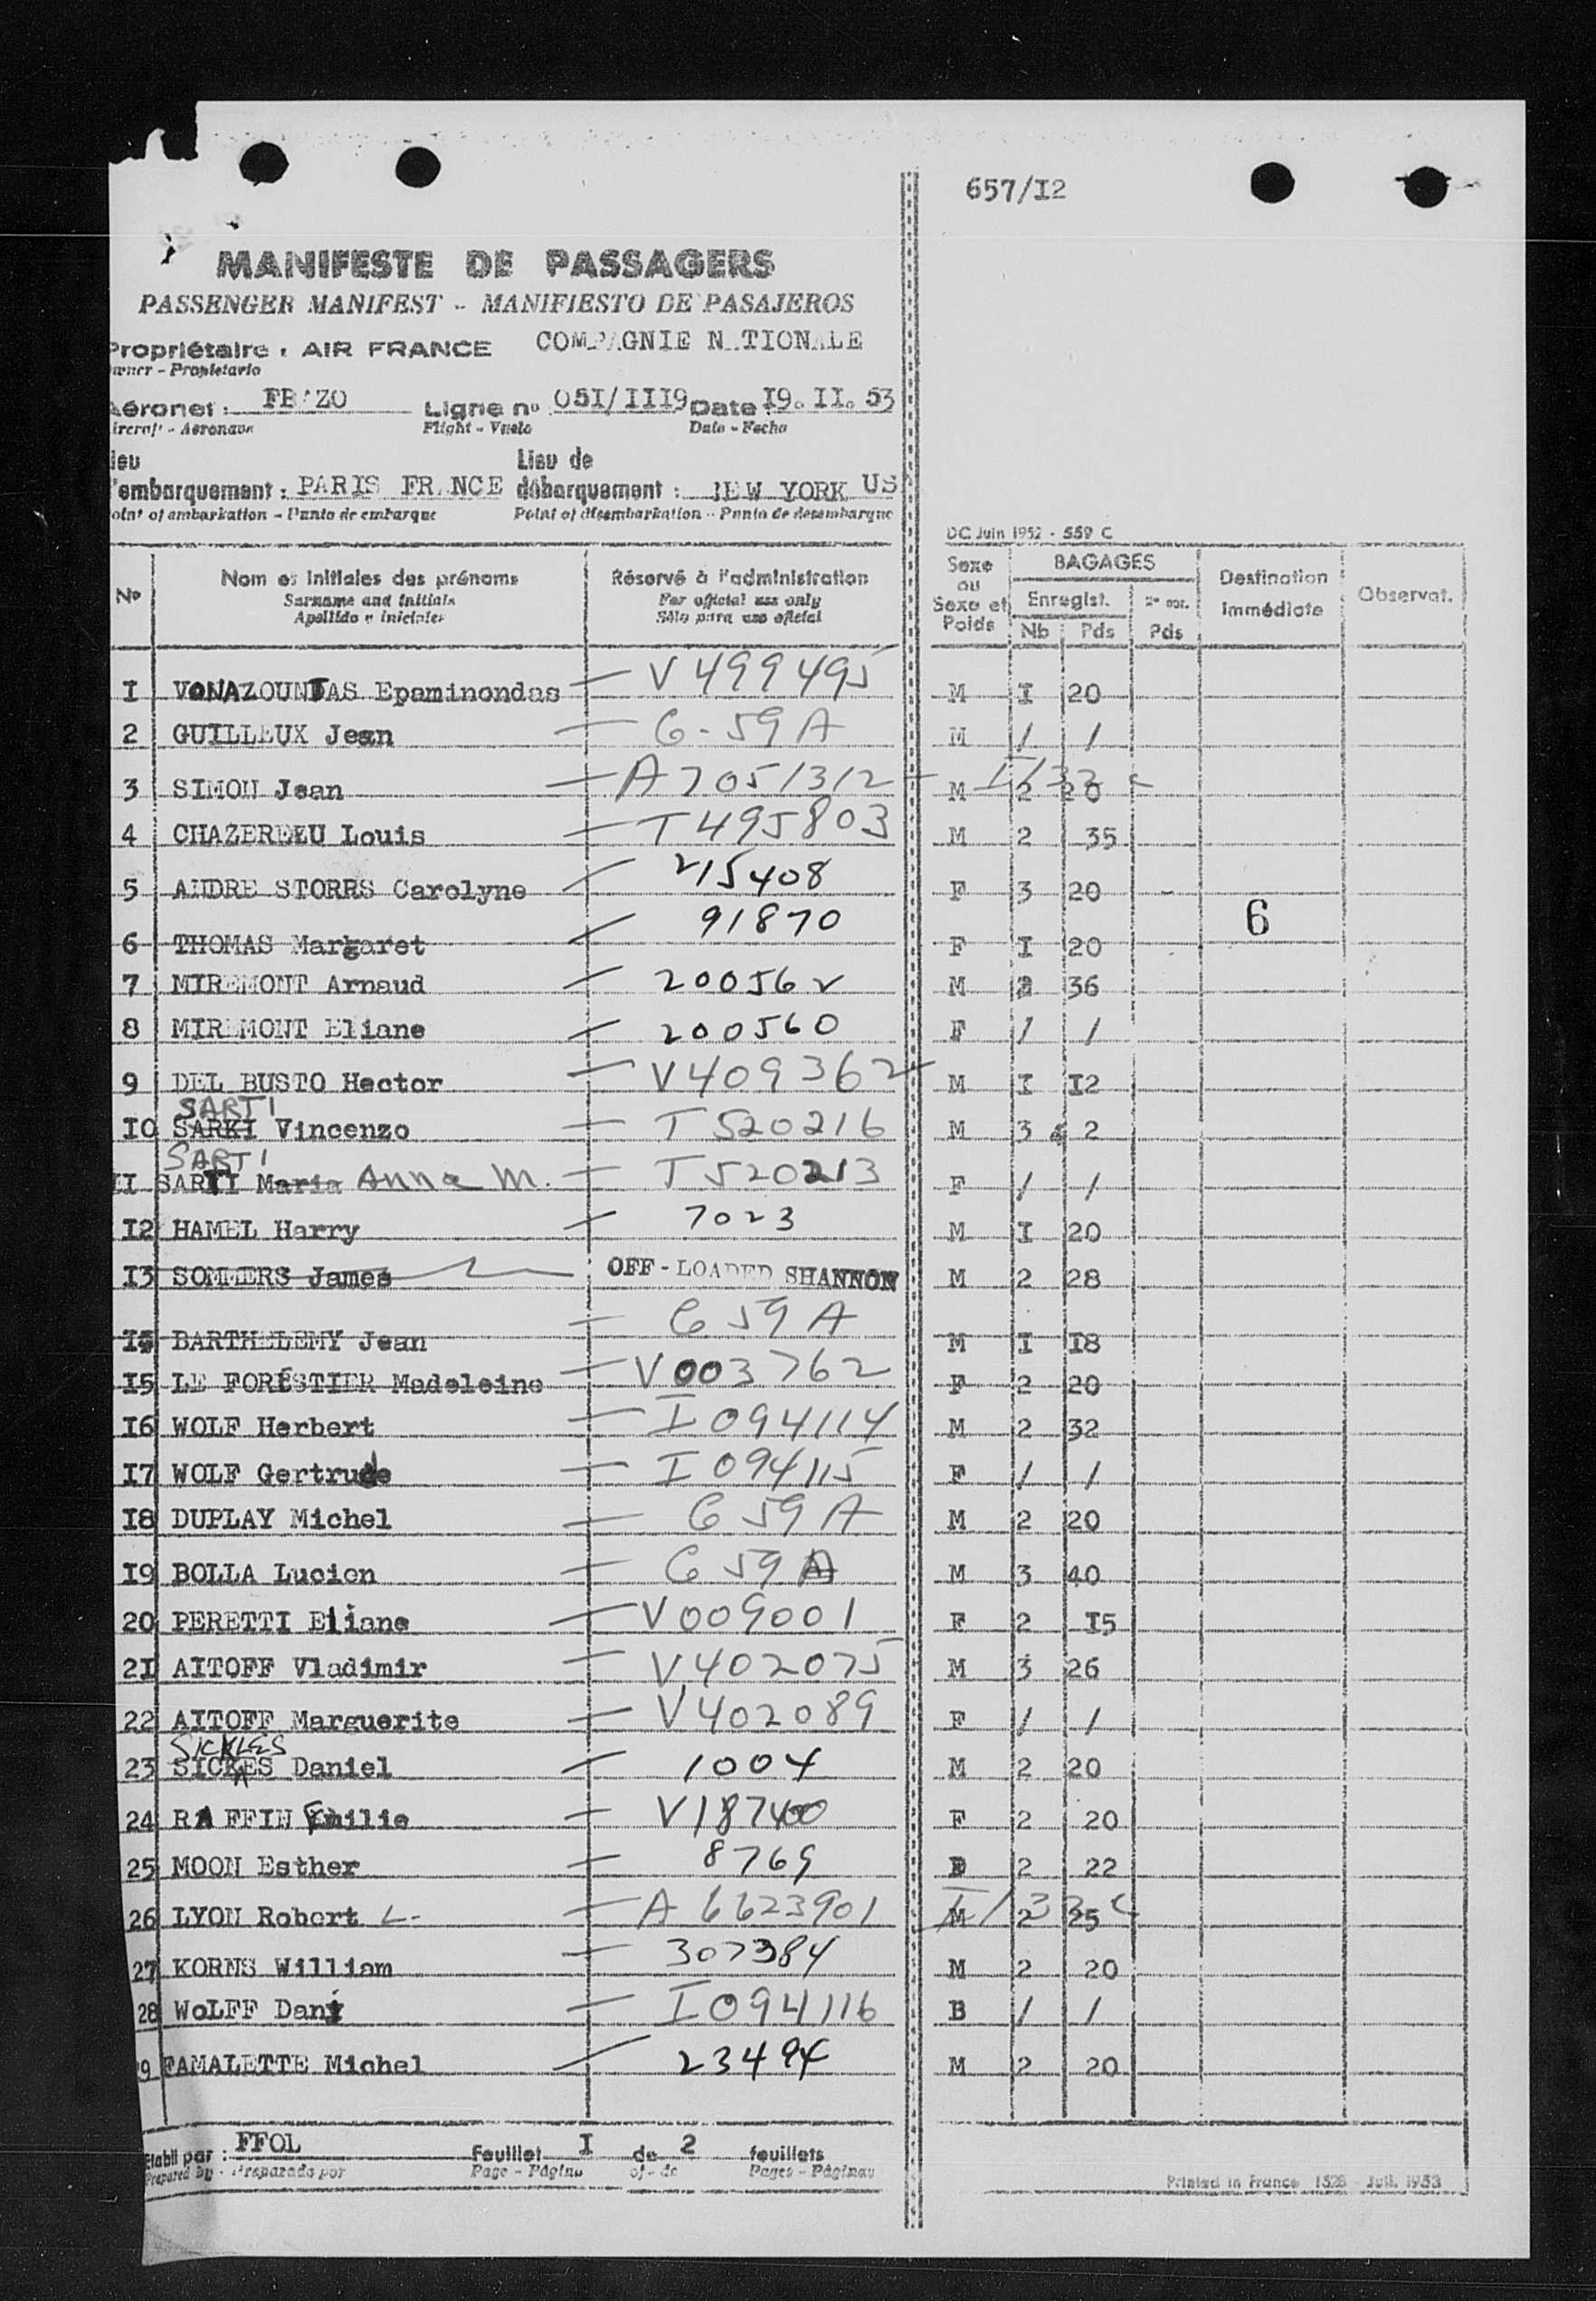 657/I2
MANIFESTE DE PASSAGERS
PASSENGER MANIFEST - MANIFIESTO DE PASAJEROS
Propriétaire : AIR FRANCE COMPAGNIE N TIONALE
wner - Propietario
Aéronef : FB ZO Ligne nº 051/III9 Date I9. II. 53
ircraft - Aeronave Flight - Vuelo Date - Fecha
ieu Lieu de
d'embarquement : PARIS FR NCE débarquement : NEW YORK US
oint of embarkation - Punto de embarque Point of disembarkation - Punto de desembarque
DC Juin 1952 - 559 C
Nº Nom et initiales des prénoms Réservé à l'administration Sexe ou Sexe et Poids BAGAGES Destination immédiate Observat.
Surname and initials For official use only Enregist.
Apellido e iniciales Sólo para uso oficial Nb Pds Pds
I VONAZOUNTAS Epaminondas — V 499495 M I 20
2 GUILLEUX Jean — C-59A M / /
3 SIMON Jean — A7051312 — M 2 20
4 CHAZEREEU Louis — T495803 M 2 35
5 ANDRE STORRS Carolyne — 215408 F 3 20 -
6 THOMAS Margaret — 91870 F I 20 6
7 MIREMONT Arnaud — 200562 M 2 36
8 MIREMONT Eliane — 200560 F / /
9 DEL BUSTO Hector — V409362 M I I2
SARTI
IO SARKI Vincenzo — T 520216 M 3 2
SARTI
II SARTI Maria Anna M. — T 520213 F / /
I2 HAMEL Harry — 7023 M I 20
I3 SOMMERS James OFF - LOADED SHANNON M 2 28
I4 BARTHELEMY Jean — C 59 A M I I8
I5 LE FORESTIER Madeleine — V003762 F 2 20
I6 WOLF Herbert — I 094114 M 2 32
I7 WOLF Gertrude — I 094115 F / /
I8 DUPLAY Michel — C 59 A M 2 20
I9 BOLLA Lucien — C 59 A M 3 40
20 PERETTI Eliane — V009001 F 2 I5
2I AITOFF Vladimir — V402075 M 3 26
22 AITOFF Marguerite — V402089 F / /
SICKLES
23 SICKES Daniel — 1004 M 2 20
24 RAFFIN Emilie — V187400 F 2 20
25 MOON Esther — 8769 2 22
26 LYON Robert L. — A 6623901 M 2 25
27 KORNS William — 307384 M 2 20
28 WOLFF Dany — I 094116 B / /
9 FAMALETTE Michel — 23494 M 2 20
Etabli par : FFOL Feuillet I de 2 feuillets
Prepared by - Preparado por Page - Página of - de Pages - Páginas
Printed in France 1526 - Juil. 1953